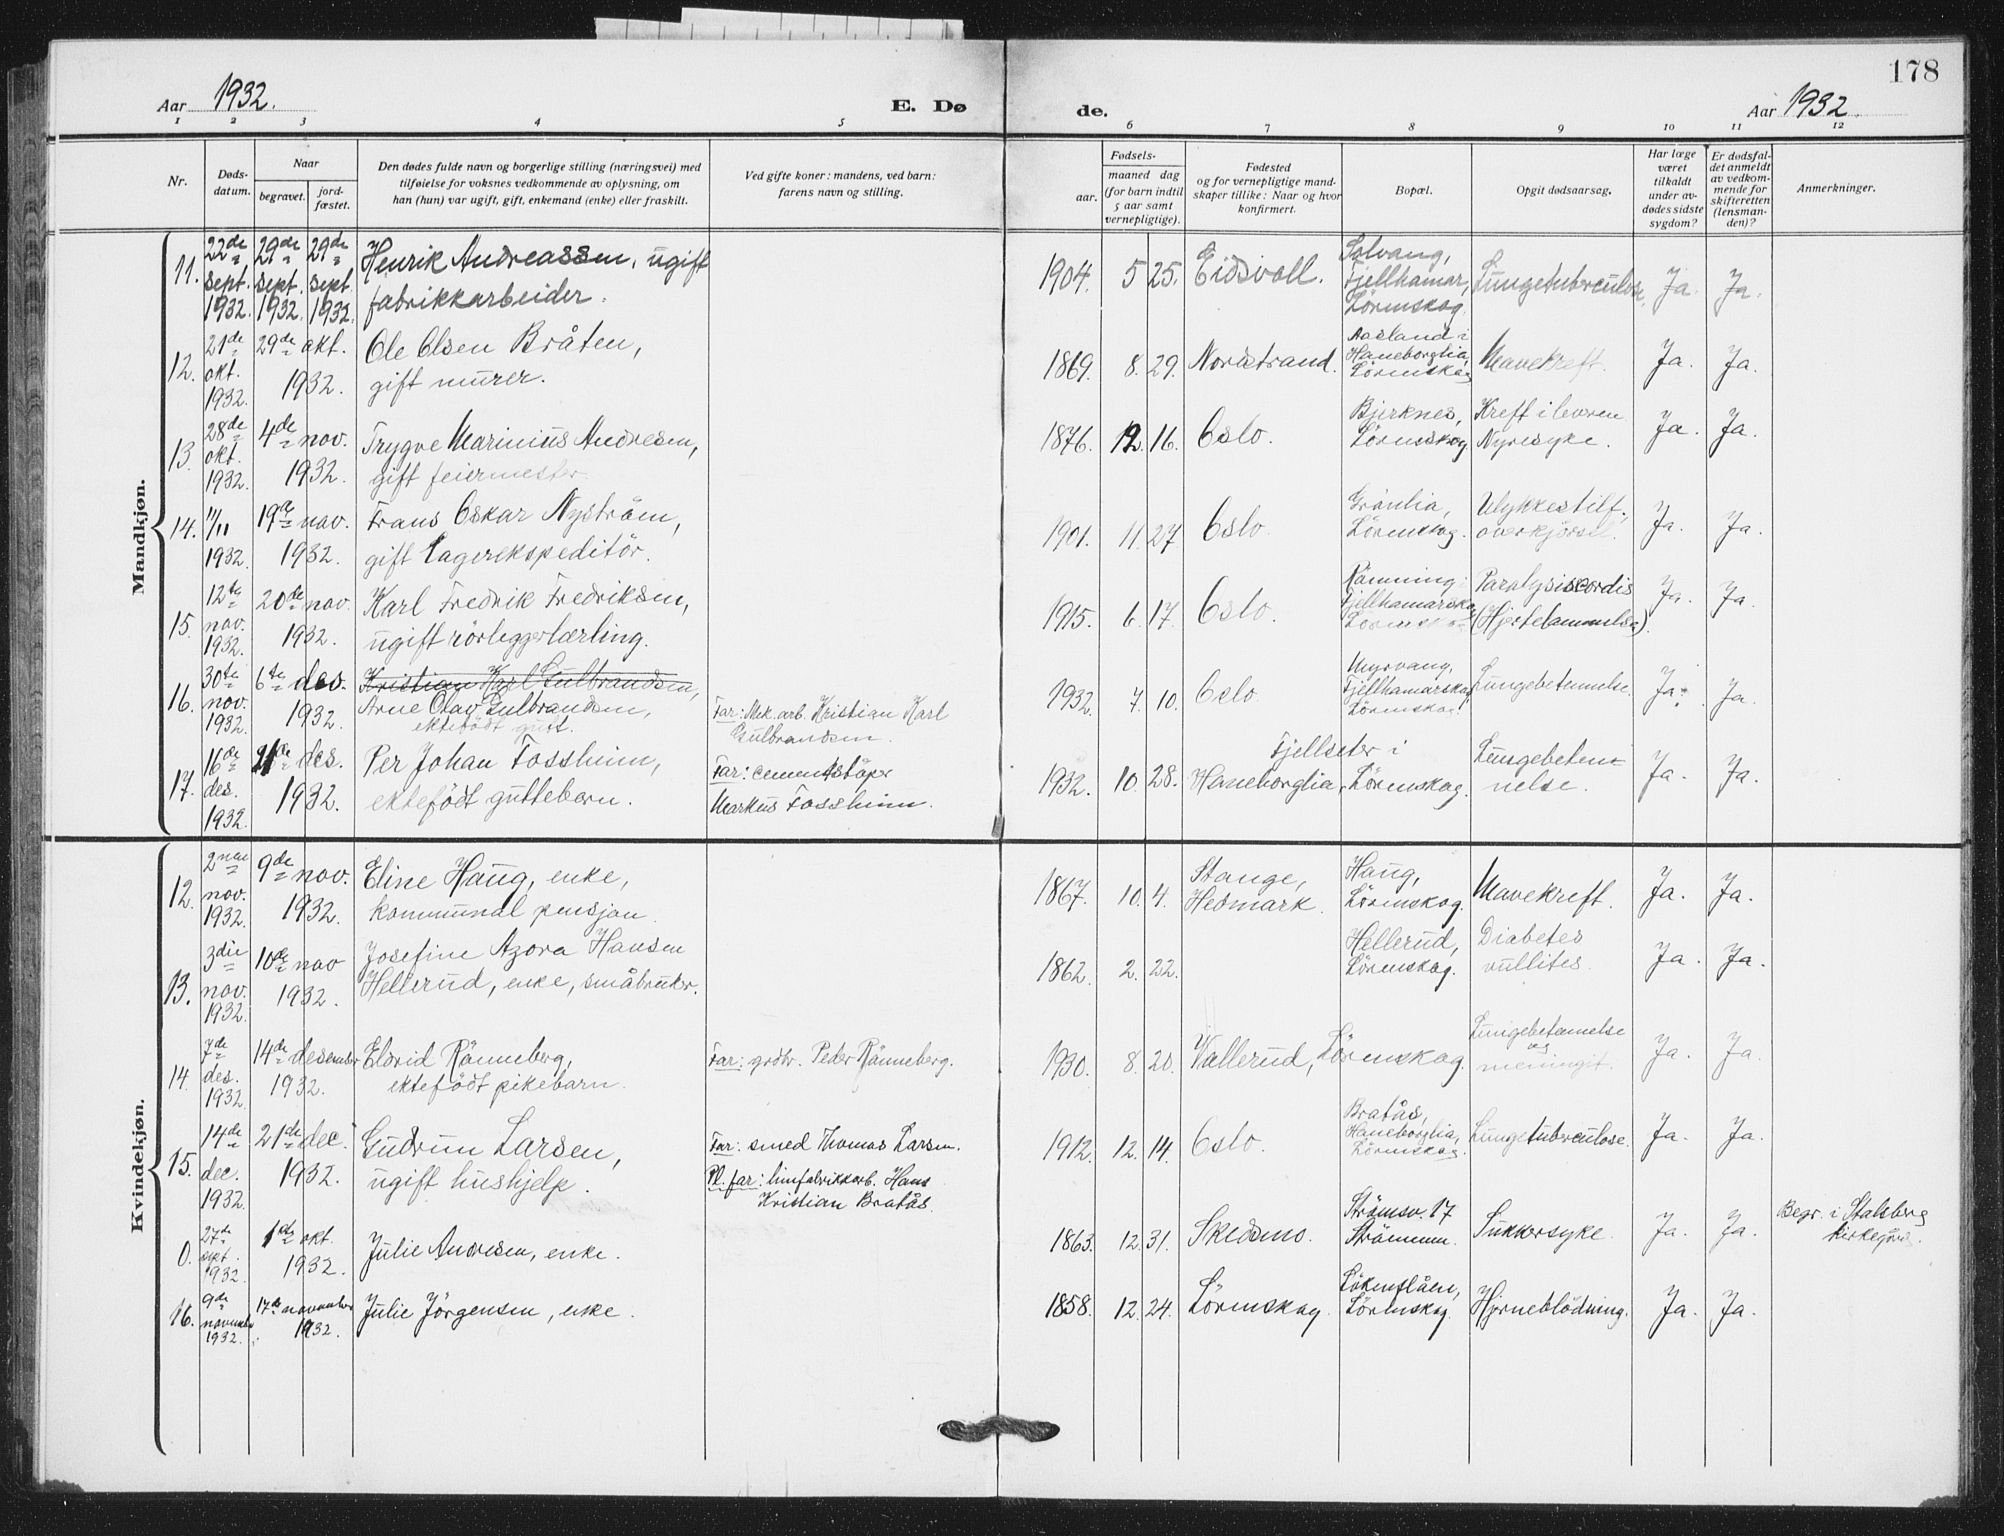 178
Aar 1932.
E. Dø
de.
Aar 1932.
1 2 3 4 5 6 7 8 9 10 11 12
Nr.
Døds-
datum.
Naar
begravet.
jord-
fæstet.
Den dødes fulde navn og borgerlige stilling (næringsvei) med
tilføielse for voksnes vedkommende av oplysning, om
han (hun) var ugift, gift, enkemand (enke) eller fraskilt.
Ved gifte koner: mandens, ved barn:
farens navn og stilling.
Fødsels-
aar.
maaned dag
(for barn indtil
5 aar samt
vernepligtige).
Fødested
og for vernepligtige mand-
skaper tillike: Naar og hvor
konfirmert.
Bopæl.
Opgit dødsaarsag.
Har læge
været
tilkaldt
under av-
dødes sidste
sygdom?
Er dødsfal-
det anmeldt
av vedkom-
mende for
skifteretten
(lensman-
den)?
Anmerkninger.
Mandkjøn.
11.
22de
sept.
1932.
29de
sept.
1932.
29de
sept.
1932.
Henrik Andreassen, ugift
fabrikkarbeider.
1904. 5 25. Eidsvoll.
Solvang,
Fjellhamar,
Lörenskog.
Lungetuberculose.
Ja. Ja.
12.
21de
okt.
1932.
29de okt.
1932.
Ole Olsen Bråten,
gift murer.
1869. 8. 29. Nordstrand.
Aasland i
Haneborglia,
Lörenskog
Mavekreft.
Ja. Ja.
13.
28de
okt.
1932.
4de nov.
1932.
Trygve Marinius Andresen,
gift feiermester.
1876. 12. 16. Oslo.
Bjerknes,
Lörenskog.
Kreft i leveren.
Nyresyke.
Ja. Ja.
14.
11/11
1932.
19de nov.
1932.
Frans Oskar Nyström,
gift Lagerekspeditör.
1901. 11. 27 Oslo.
Grönlia,
Lörenskog.
Ulykkestilf.,
overkjörsel.
Ja. Ja.
15.
12te
nov.
1932.
20de nov.
1932.
Karl Fredrik Fredriksen,
ugift rörleggerlærling.
1915. 6. 17. Oslo.
Fjellhamarskog
Lörenskog
Paralysis cordis
(Hjertelammelse).
Ja. Ja.
16.
30te
nov.
1932.
6te des.
1932.
Kristian Karl Gulbrandsen,
Arne Olav Gulbrandsen,
ektefödt gutt.
Far: Mek. arb. Kristian Karl
Gulbrandsen.
1932. 7. 10. Oslo.
Myrvang,
Fjellhamarskog,
Lörenskog.
Lungebetennelse.
Ja. Ja.
17.
16de
des.
1932.
21de des.
1932.
Per Johan Fossheim,
ektefödt guttebarn.
Far: cementstöper
Markus Fossheim.
1932. 10. 28.
Fjellseter i
Haneborglia, Lörenskog.
Lungebeten-
nelse.
Ja. Ja.
Kvindekjøn.
12.
2nen
nov.
1932.
9de nov.
1932.
Eline Haug, enke,
kommunal pensjon.
1867. 10. 4.
Stange,
Hedmark.
Haug,
Lörenskog.
Mavekreft.
Ja. Ja.
13.
3die
nov.
1932.
10de nov
1932.
Josefine Azora Hansen
Hellerud, enke, småbruker.
1862. 2. 22.
Hellerud,
Lörenskog.
Diabetes
Ja. Ja.
14.
7de
des.
1932.
14de desember
1932.
Eldrid Rönneberg,
ektefödt pikebarn.
Far: grdbr. Peder Rönneberg.
1930. 8. 20. Vallerud, Lörenskog.
Lungebetennelse
og
meningit.
Ja. Ja.
15.
14de
dec.
1932.
21de dec.
1932.
Gudrun Larsen,
ugift hushjelp.
Far: smed Thomas Larsen.
Pl. far: limfabrikkarb. Hans
Kristian Bratås.
1912. 12. 14. Oslo.
Bratås,
Haneborglia,
Lörenskog.
Lungetuberculose.
Ja. Ja.
0.
27de
sept.
1932
1ste okt.
1932.
Julie Andresen, enke.
1863. 12. 31. Skedsmo.
Strömsv. 17
Strömmen.
Sukkersyke.
Ja. Ja.
Begr. i Stalsberg
kirkegård.
16.
9de
november
1932.
17de november
1932.
Julie Jörgensen, enke.
1858. 12. 24. Lörenskog.
Lökenflåen,
Lörenskog.
Hjerneblödning.
Ja. Ja.